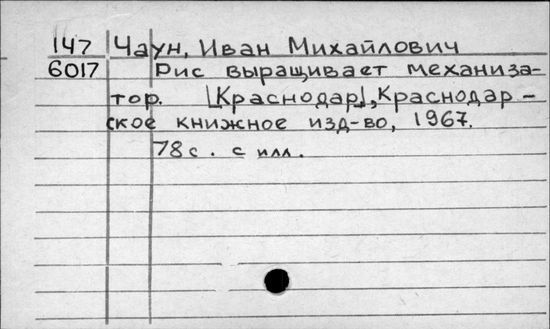 147 Чаун, Иван Михайлович
6017 Рис выращивает механиза-
тор. [Краснодар], Краснодар-
ское книжное изд-во, 1967.
78 с. с илл.